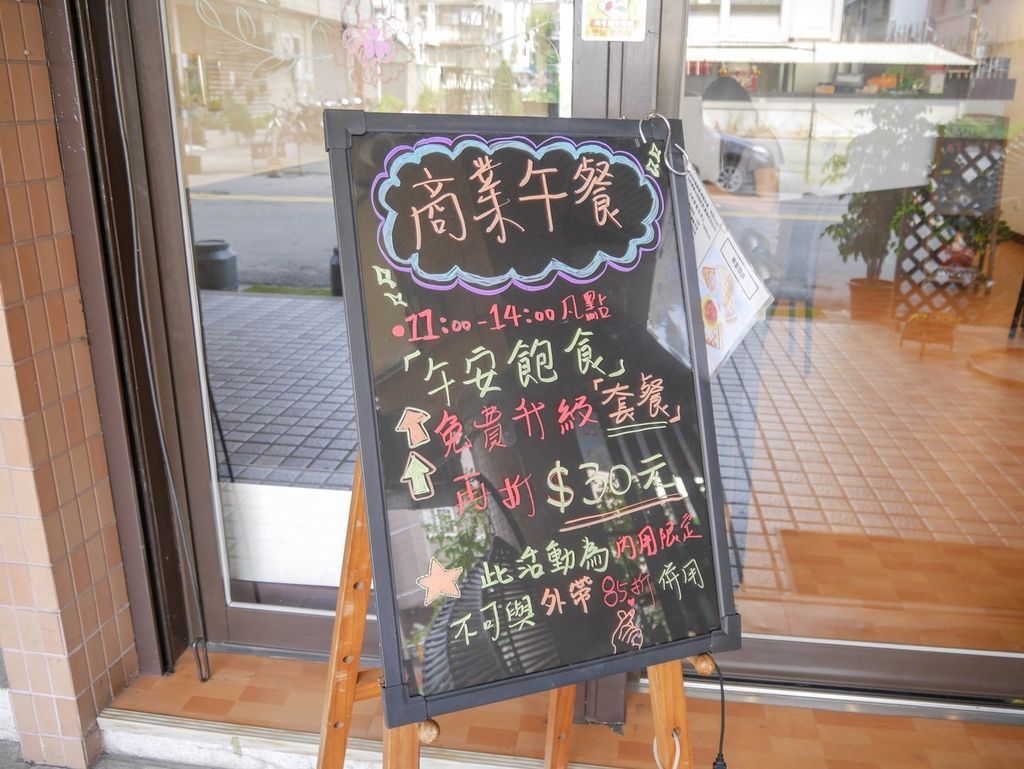 商業午餐
•11:00-14:00凡點
「午安飽食」
免費升級「套餐」
再折$30元
此活動為內用限定
不可與外帶85折併用